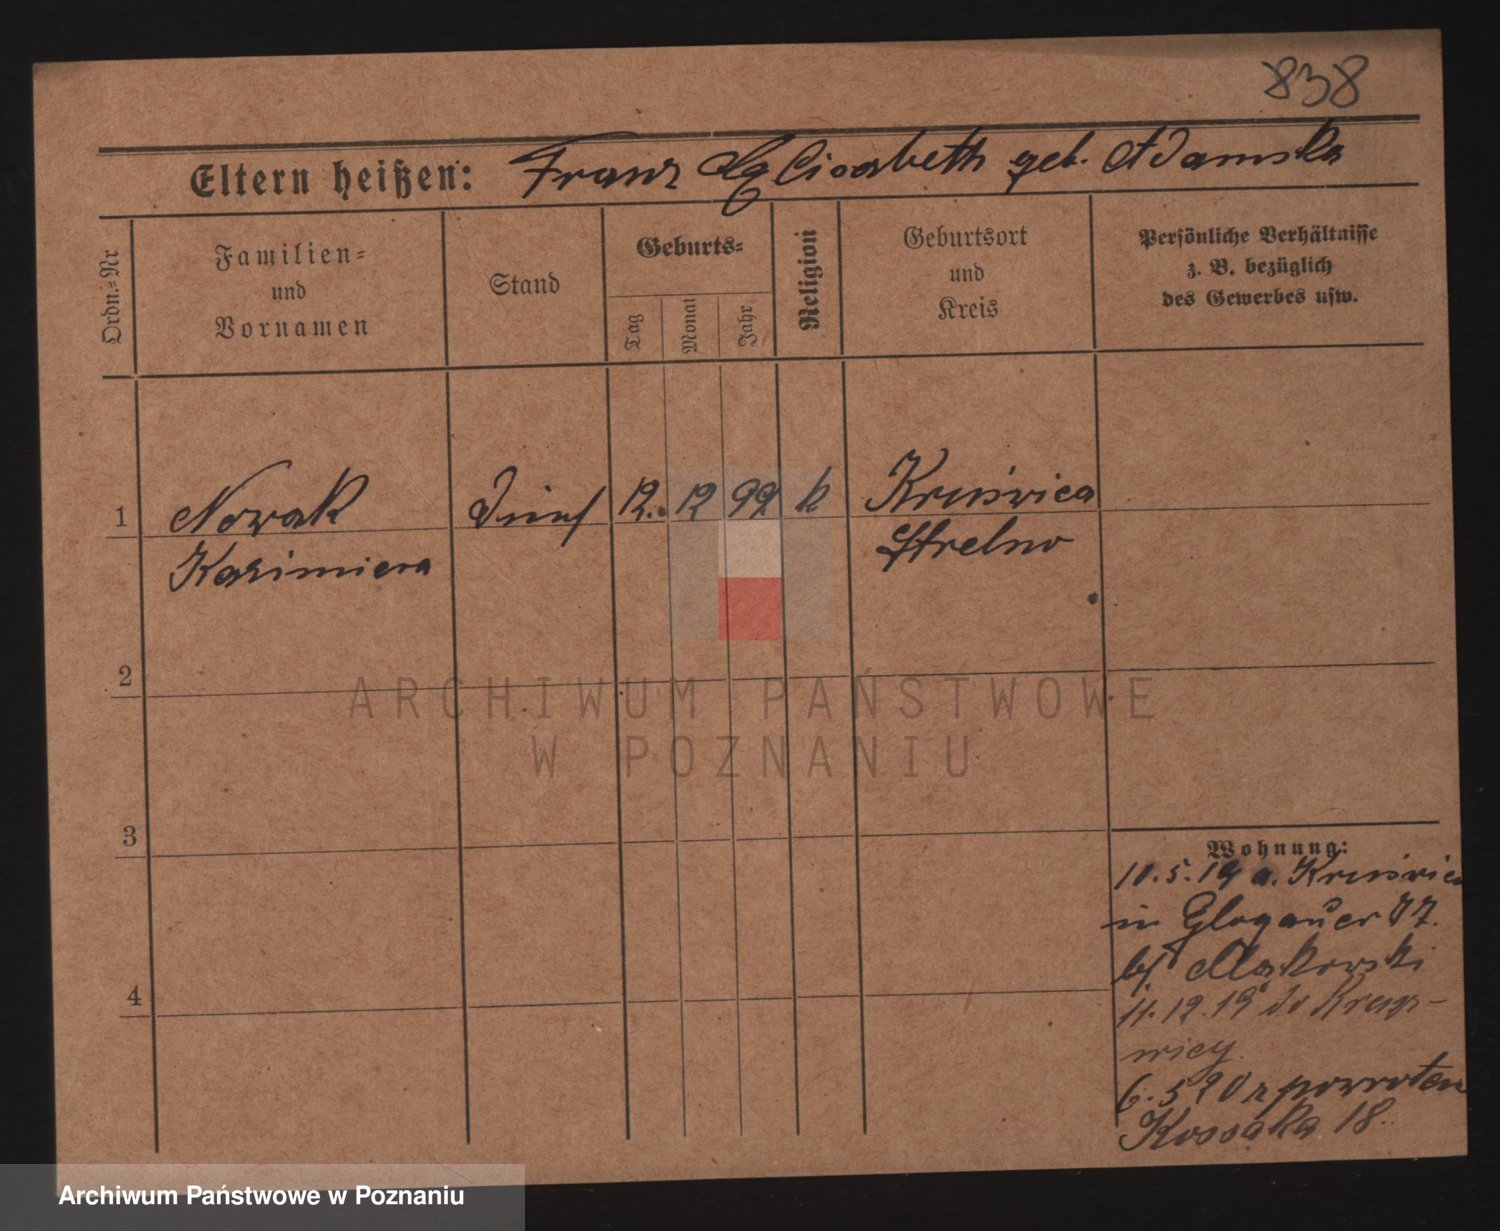 838
Eltern heißen: Franz Elisabeth geb. Adamska
Ordn.=Nr
Familien=
und
Vornamen
Stand
Geburts=
Tag
Monat
Jahr
Religion
Geburtsort
und
Kreis
Persönliche Verhältnisse
z. B. bezüglich
des Gewerbes usw.
1 Nowak 12. 12 99 k Kruśvica
Kazimiera Strelno
2
3
4
Wohnung:
10.5.19 a. Kruśvica
in Glogauer 77.
bf Makowski
11.12.19 do Krusz-
wicy.
6.5 20 z powrotem
Kossaka 18.
ARCHIWUM PAŃSTWOWE
W POZNANIU
Archiwum Państwowe w Poznaniu